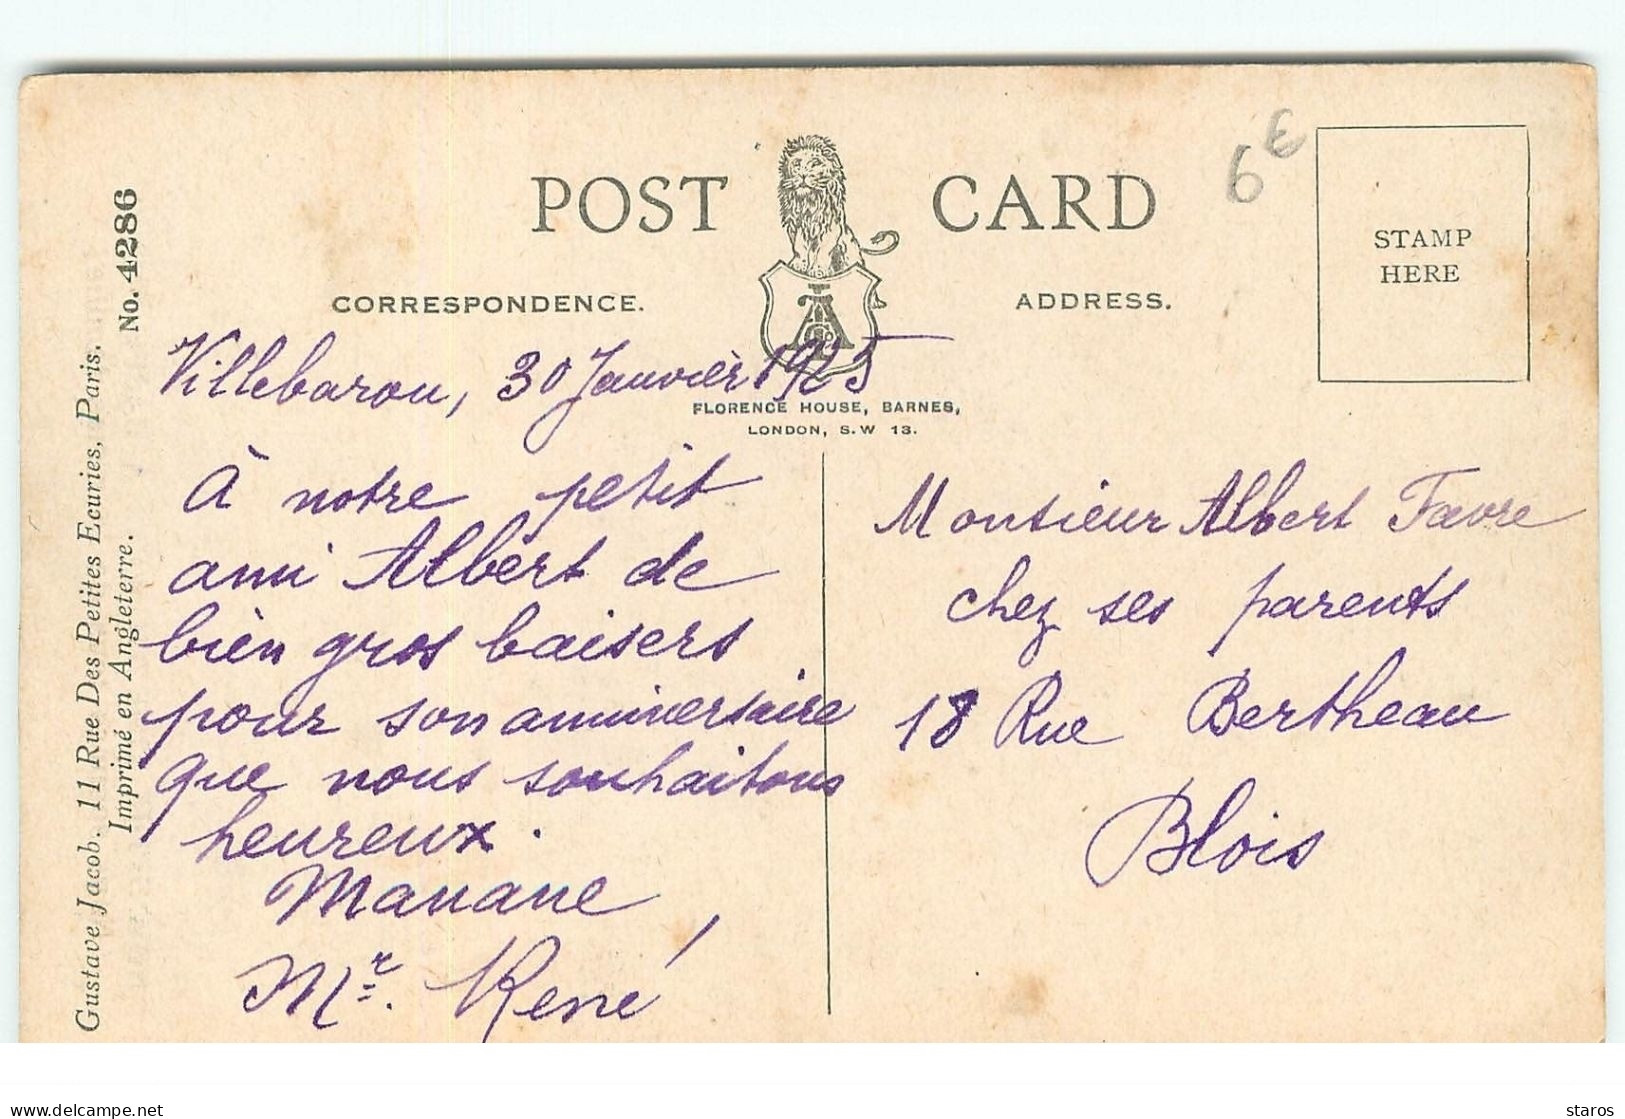 POST CARD
6€
STAMP
HERE
CORRESPONDENCE.
ADDRESS.
FLORENCE HOUSE, BARNES,
LONDON, S.W 13.
No. 4286
Gustave Jacob. 11 Rue Des Petites Ecuries. Paris.
Imprimé en Angleterre.
Villebarou, 30 Janvièr 1925
À notre petit
ami Albèrt de
bièn gros baisers
pour son anniversaire
que nous souhaitons
heureux.
Manane
Mr. René
Monsieur Albert Favre
chez ses parents
18 Rue Bertheau
Blois
delcampe.net
staros